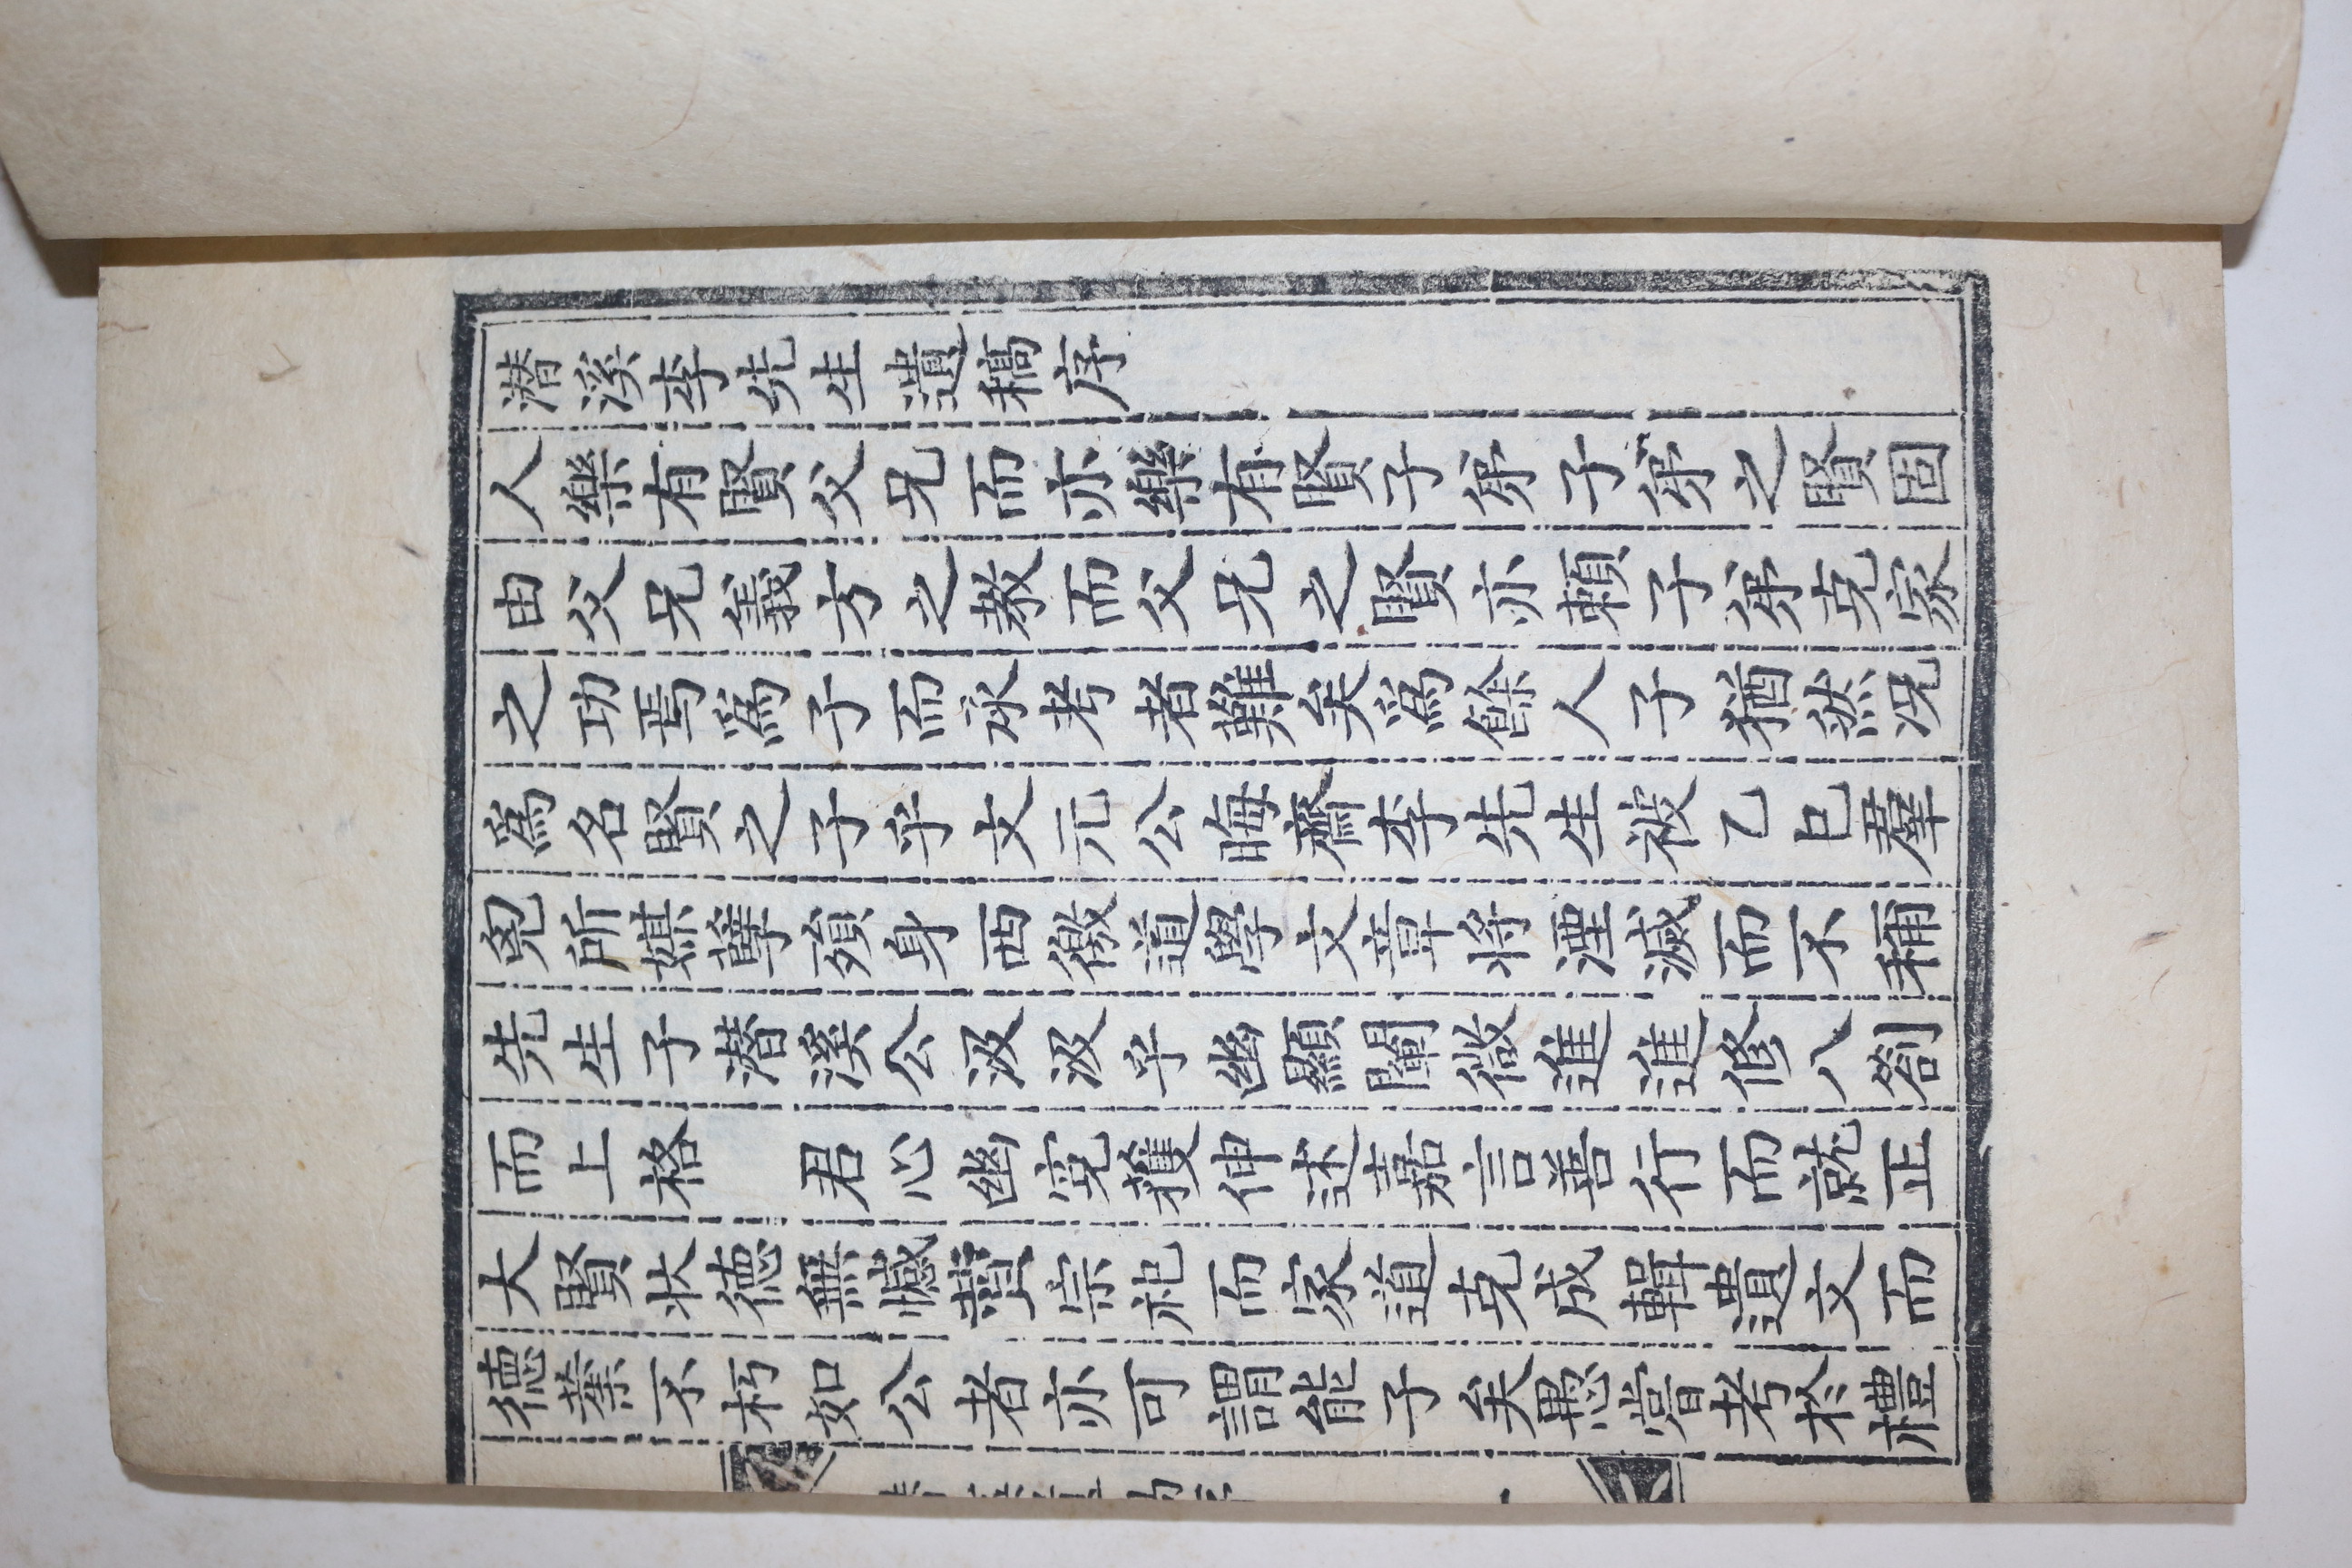 潜溪李先生遺稿序
人樂有賢父兄而亦樂有賢子弟子弟之賢固
由父兄義方之教而父兄之賢亦頼子弟克家
之功焉爲子而承考者難矣爲餘人子猶然况
爲名賢之子乎文元公晦齋李先生被乙巳羣
兇所媒孽殞身西徼道學文章将湮滅而不稱
先生子潜溪公汲汲乎幽顯闡微進進修八劄
而上格　君心幽寃獲伸述嘉言善行而就正
大賢狀德無憾賛宗祀而家道克成輯遺文而
德業不朽如公者亦可謂能子矣愚嘗考於禮